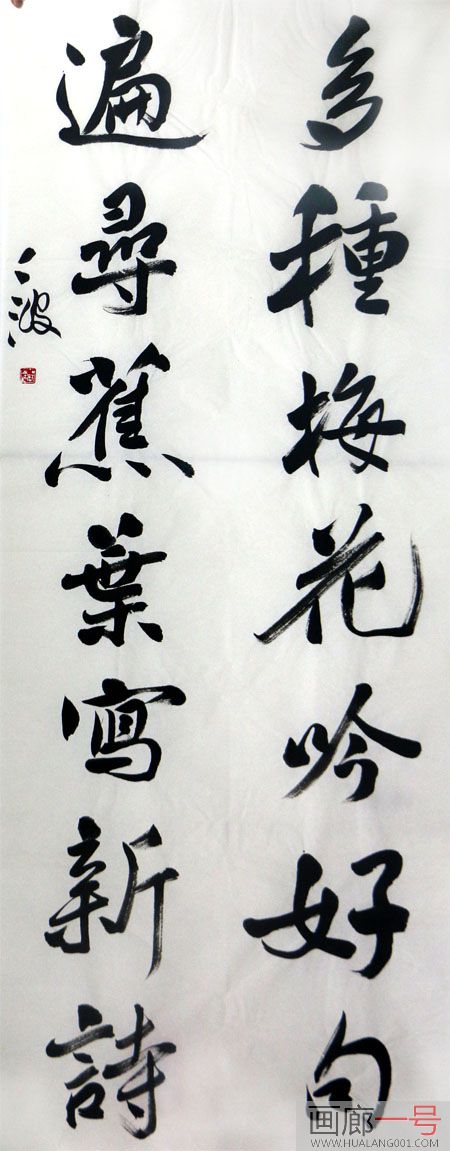 多種梅花吟好句
遍尋蕉葉寫新詩
画廊一号
WWW.HUALANG001.COM